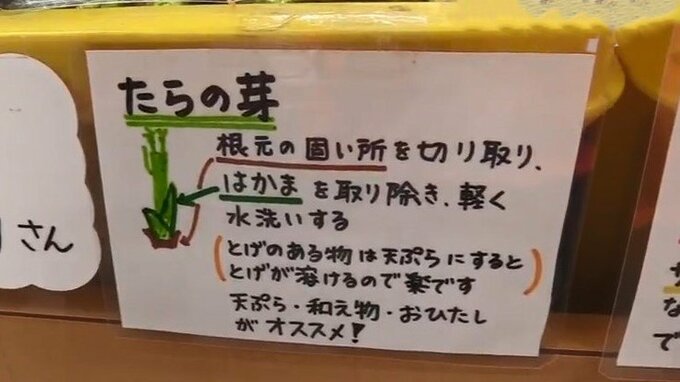 たらの芽
根元の固い所を切り取り、
はかまを取り除き、軽く
水洗いする
(とげのある物は天ぷらにすると
とげが溶けるので楽です)
天ぷら・和え物・おひたし
がオススメ!
さん
な
で